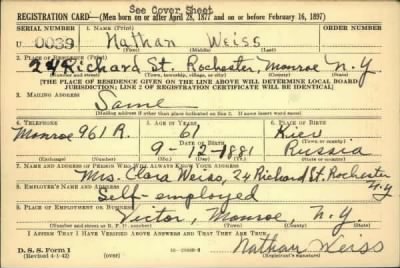 See Cover Sheet
REGISTRATION CARD—(Men born on or after April 28, 1877 and on or before February 16, 1897)
SERIAL NUMBER 1. NAME (Print) ORDER NUMBER
U 0039 Nathan Weiss
(First) (Middle) (Last)
2. PLACE OF RESIDENCE (Print)
24 Richard St. Rochester, Monroe N.Y
(Number and street) (Town, township, village, or city) (County) (State)
[THE PLACE OF RESIDENCE GIVEN ON THE LINE ABOVE WILL DETERMINE LOCAL BOARD
JURISDICTION; LINE 2 OF REGISTRATION CERTIFICATE WILL BE IDENTICAL]
3. MAILING ADDRESS
Same
[Mailing address if other than place indicated on line 2. If same insert word same]
4. TELEPHONE 5. AGE IN YEARS 6. PLACE OF BIRTH
Monroe 961 R. 61 Kiev
DATE OF BIRTH (Town or county)
9-12-1881 Russia
(Exchange) (Number) (Mo.) (Day) (Yr.) (State or country)
7. NAME AND ADDRESS OF PERSON WHO WILL ALWAYS KNOW YOUR ADDRESS
Mrs. Clara Weiss, 24 Richard St. Rochester
N.Y
8. EMPLOYER'S NAME AND ADDRESS
Self-employed
9. PLACE OF EMPLOYMENT OR BUSINESS
Victor, Monroe, N.Y.
(Number and street or R. F. D. number) (Town) (County) (State)
I AFFIRM THAT I HAVE VERIFIED ABOVE ANSWERS AND THAT THEY ARE TRUE.
D. S. S. Form 1
(Revised 4-1-42) (over) Nathan Weiss
(Registrant's signature)